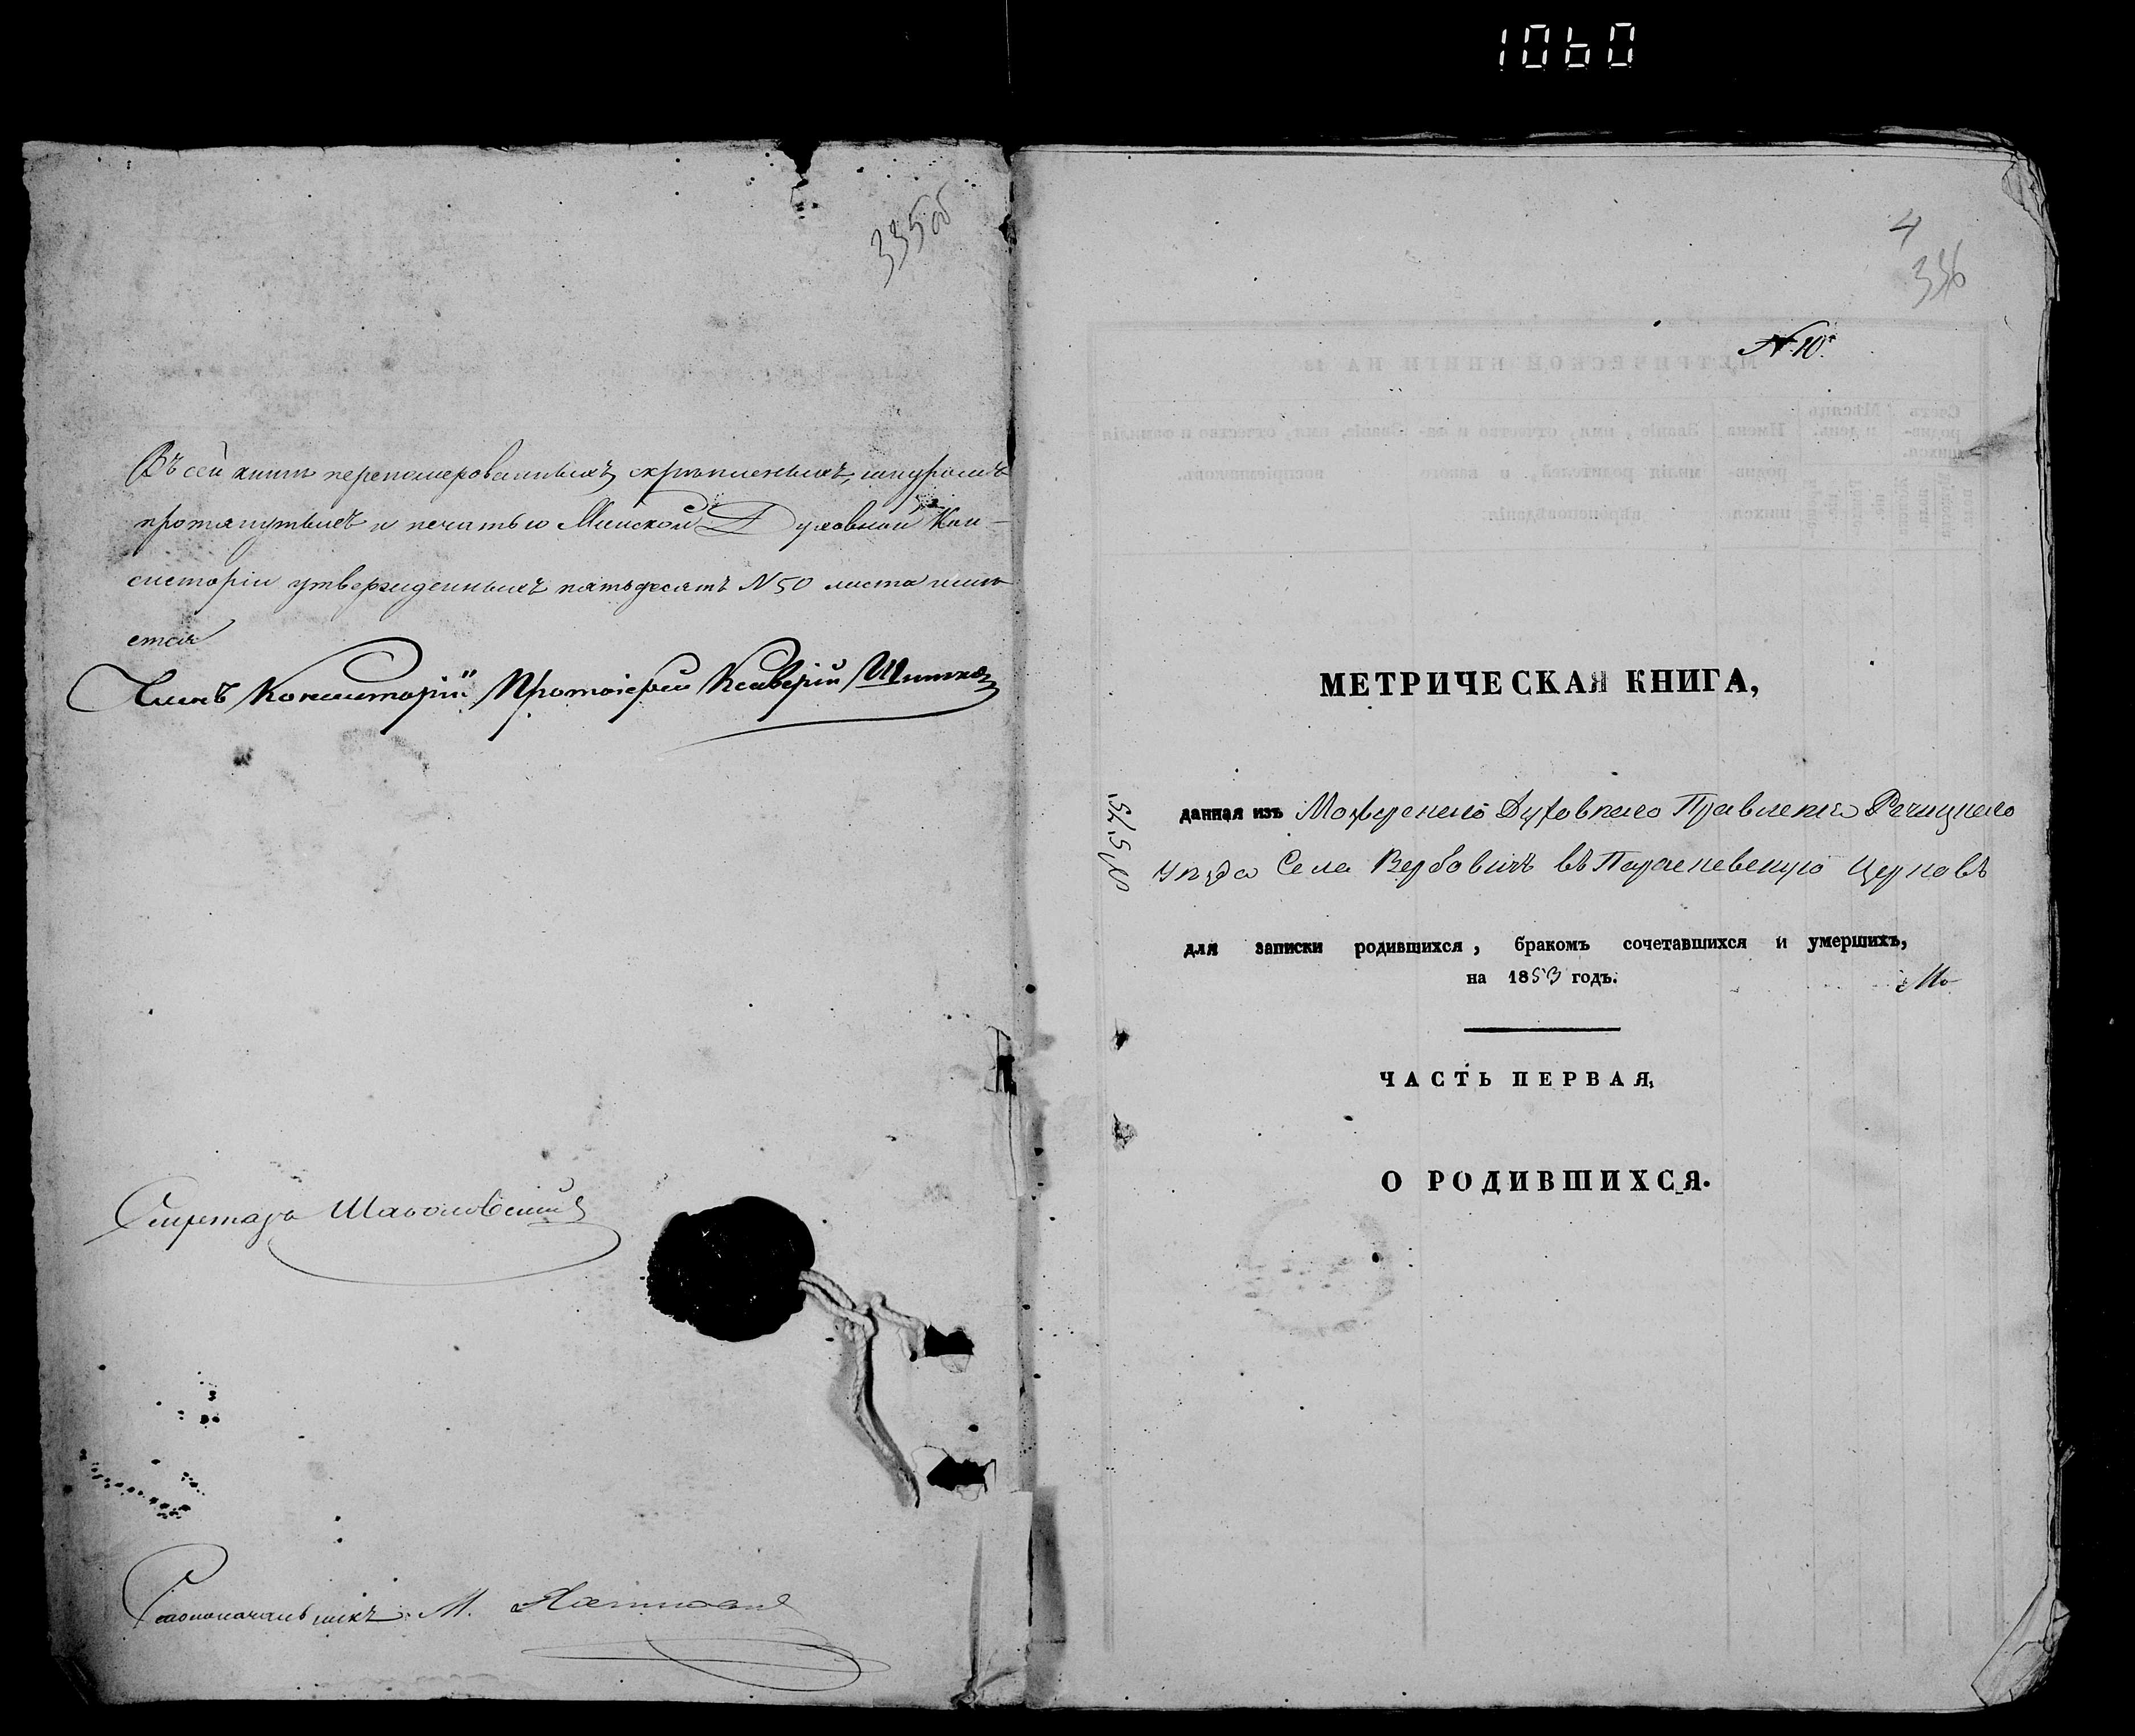 1060
335об
Въ сей книгѣ перенумерованныхъ, скрѣпленныхъ, шнуромъ
протянутыхъ и печатью Минской Духовной Кон-
систоріи утвержденныхъ пятьдесятъ №50 листа имѣ
ется
Членъ Консисторіи Протоіерей Ксаверій
Секретарь
Столоначальникъ М.
4
336
№ 10.
МЕТРИЧЕСКАЯ КНИГА,
данная изъ Мозырскаго Духовнаго Правленія Речицкаго
Уѣзда Села Вербовичъ въ Параскевскую Церковь
для записки родившихся, бракомъ сочетавшихся и умершихъ,
на 1853 годъ.
ЧАСТЬ ПЕРВАЯ,
О РОДИВШИХСЯ.